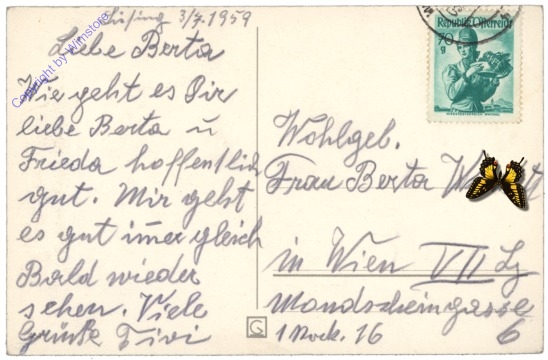 3/7. 1959
Liebe Berta
Wie geht es Dir
liebe Berta u
Frieda hoffentlich
gut. Mir geht
es gut imer gleich
Bald wieder
sehen. Viele
Grüße Tini
Republik Österreich
70
g
Wohlgeb.
Frau Berta
in Wien VII
Mondscheingasse
1 Stock. 16 6
G
Copyright by Wimstore